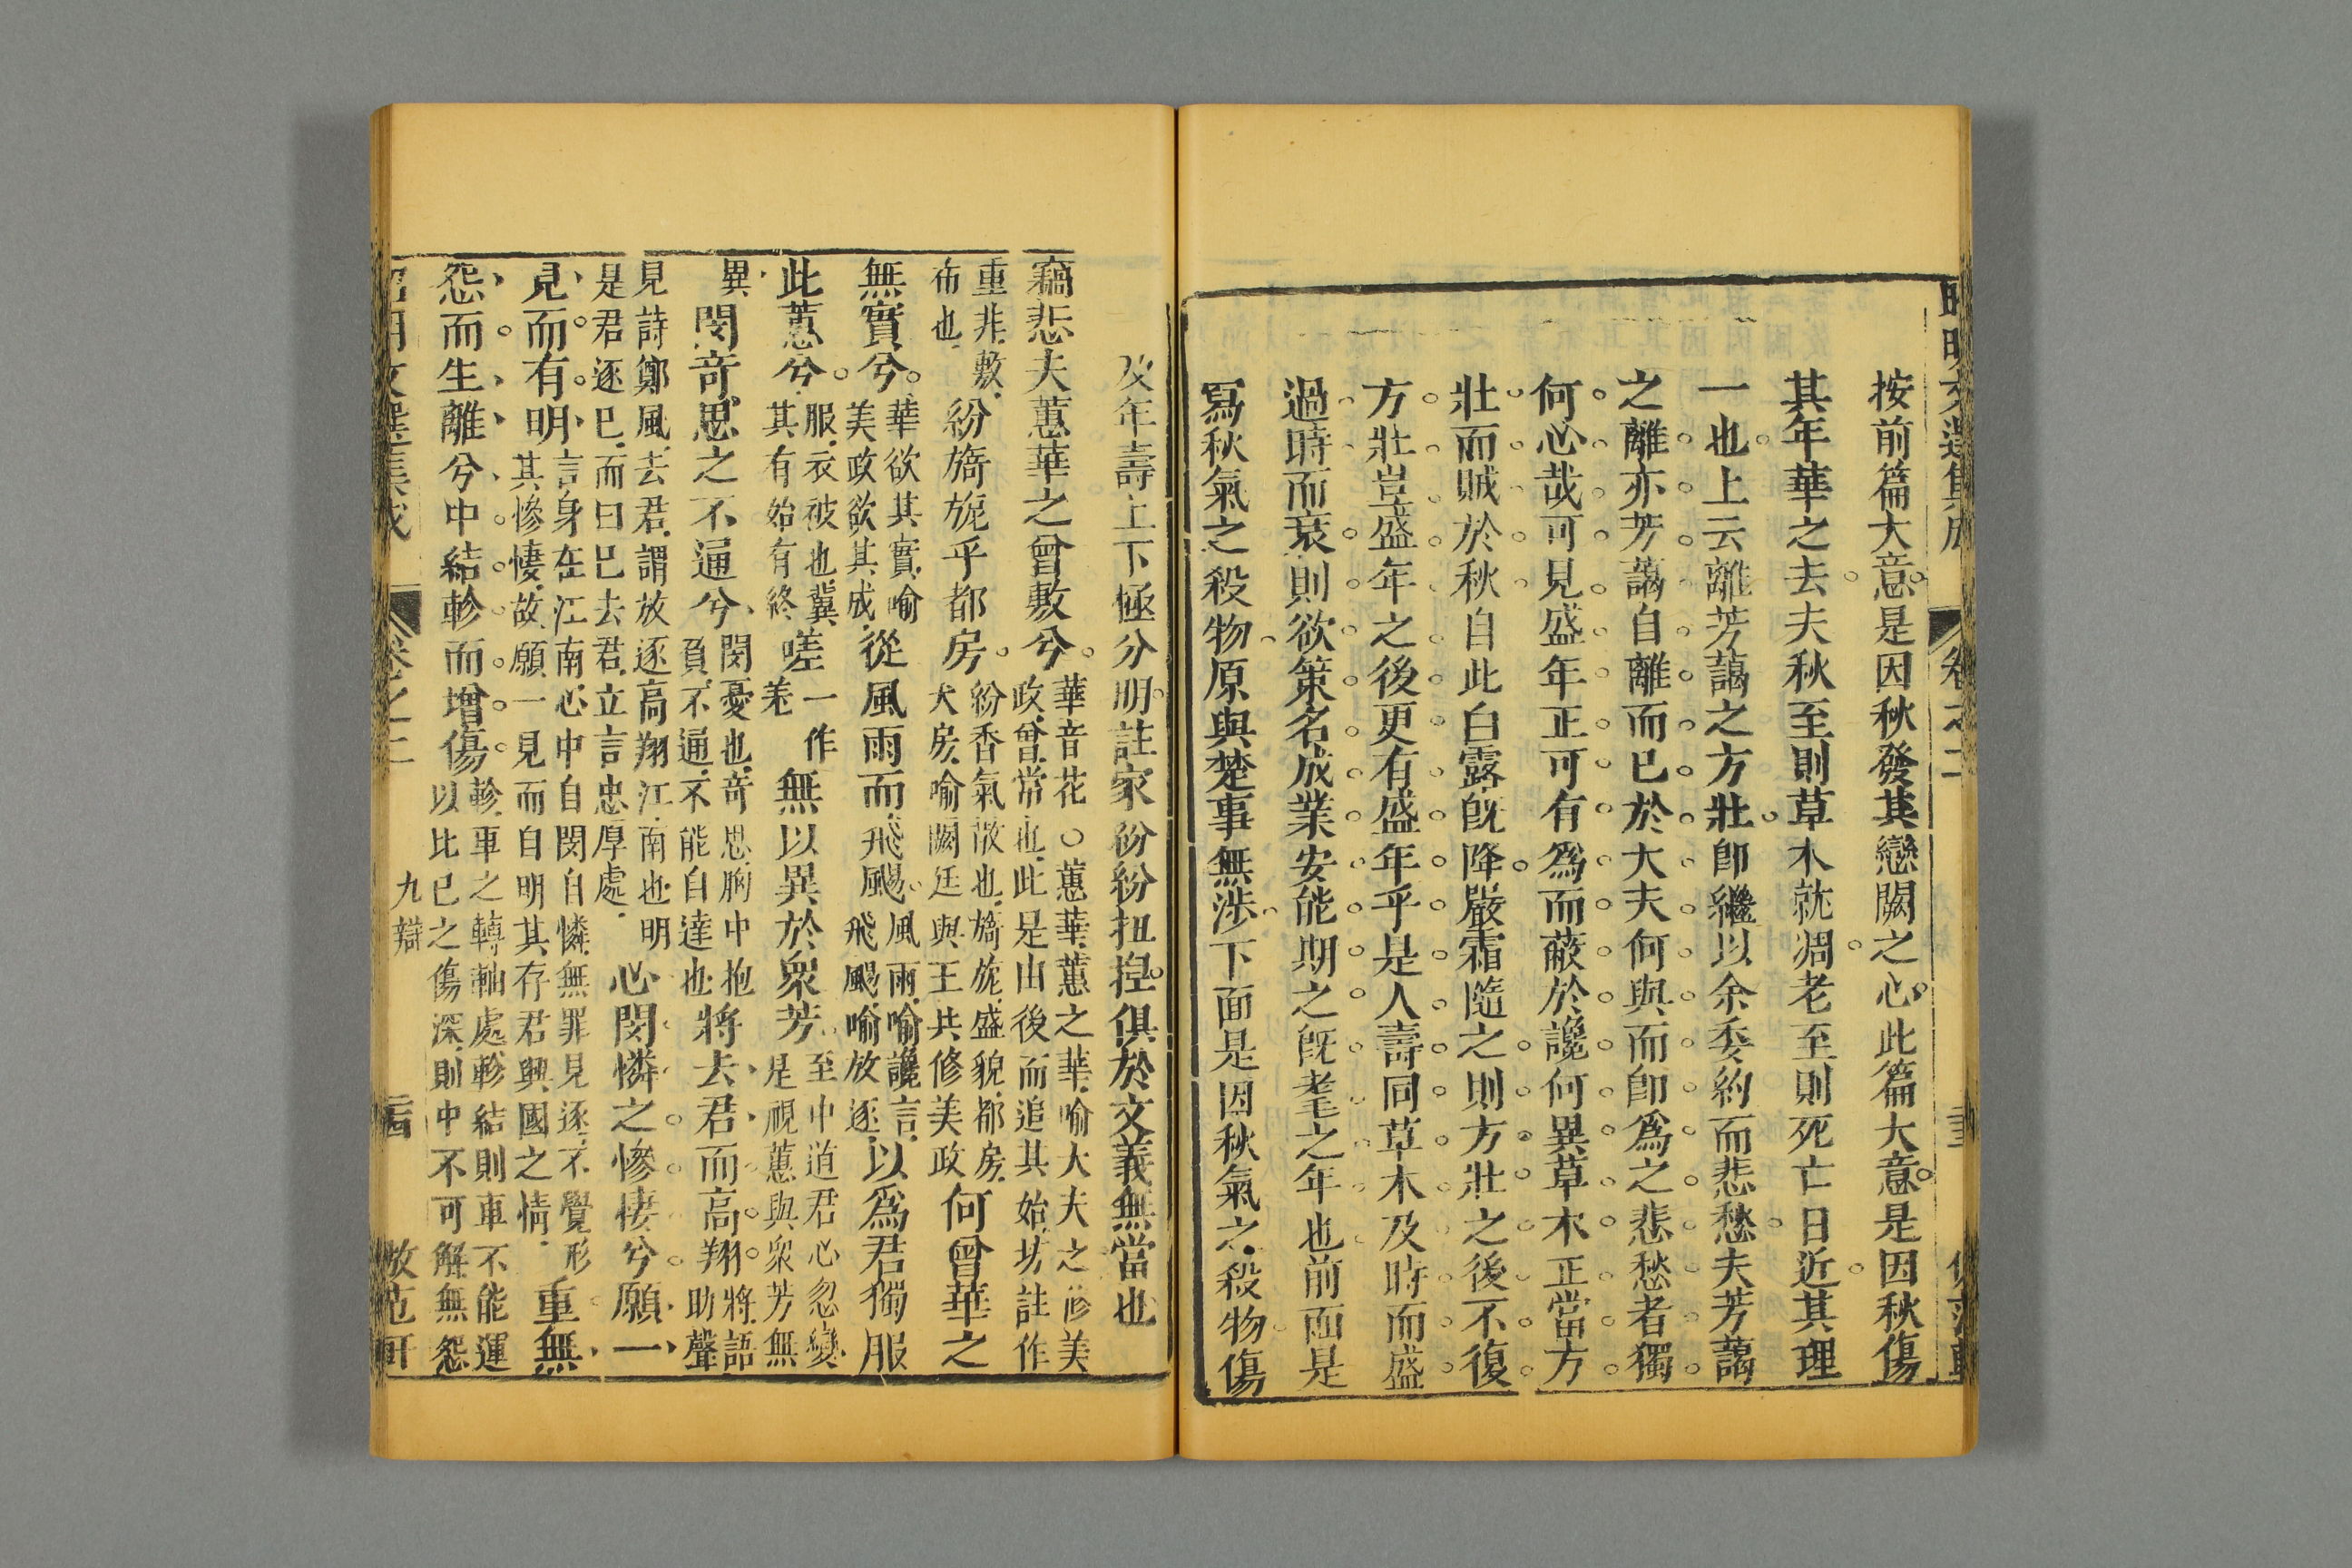 按前篇大意是因秋發其戀闕之心此篇大意是因秋傷
其年華之去夫秋至則草木就凋老至則死亡日近其理
一也上云離芳藹之方壯卽繼以余委約而悲愁夫芳藹
之離亦芳藹自離而已於大夫何與而卽爲之悲愁者獨
何心哉可見盛年正可有爲而蔽於讒何異草木正當方
壯而賊於秋自此白露旣降嚴霜隨之則方壯之後不復
方壯豈盛年之後更有盛年乎是人壽同草木及時而盛
過時而衰則欲策名成業安能期之旣耄之年也前面是
寫秋氣之殺物原與楚事無涉下面是因秋氣之殺物傷
及年壽上下極分明註家紛紛扭捏俱於文義無當也
竊悲夫蕙華之曾敷兮華音花○蕙華蕙之華喻大夫之修美政曾常也此是由後而追其始坊註作
重非敷布也紛旖旎乎都房紛香氣散也旖旎盛貌都房大房喻闕廷與王共修美政何曾華之
無實兮華欲其實喻美政欲其成從風雨而飛颺風雨喻讒言飛颺喻放逐以爲君獨服
此蕙兮服衣被也冀其有始有終嗟一作羌無以異於衆芳至中道君心忽變是視蕙與衆芳無
異閔奇思之不通兮閔憂也奇思胸中抱負不通不能自達也將去君而高翔將語助聲
見詩鄭風去君謂放逐高翔江南也明是君逐已而曰已去君立言忠厚處心閔憐之慘悽兮願一
見而有明言身在江南心中自閔自憐無罪見逐不覺形其慘悽故願一見而自明其存君興國之情重無
怨而生離兮中結軫而增傷軫車之轉軸處軫結則車不能運以比已之傷深則中不可解無怨
九辯